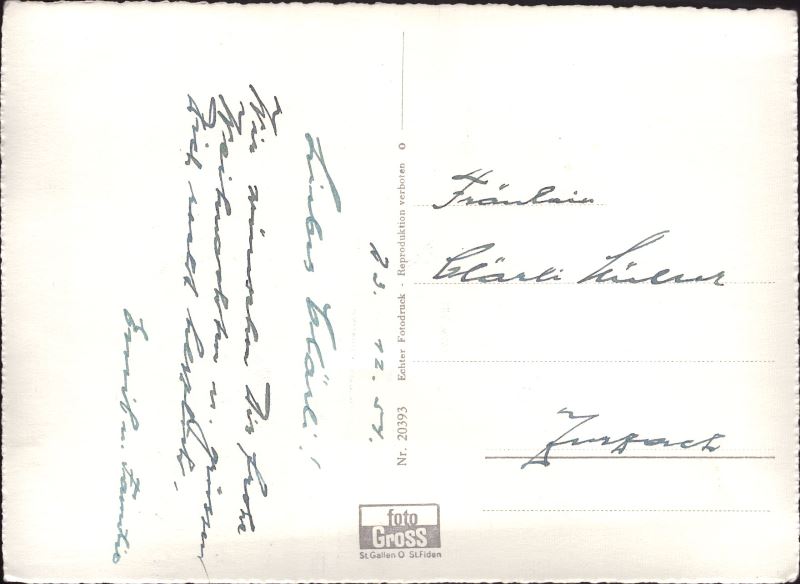 23. 12. 54.
Liebes Clärli!
Wir wünschen Dir frohe
Weihnachten u. grüssen
Dich recht herzlich.
Emil u. Familie
Nr. 20393 Echter Fotodruck - Reproduktion verboten O
Fräulein
Clärli
Zurzach
foto
Gross
St.Gallen O St.Fiden